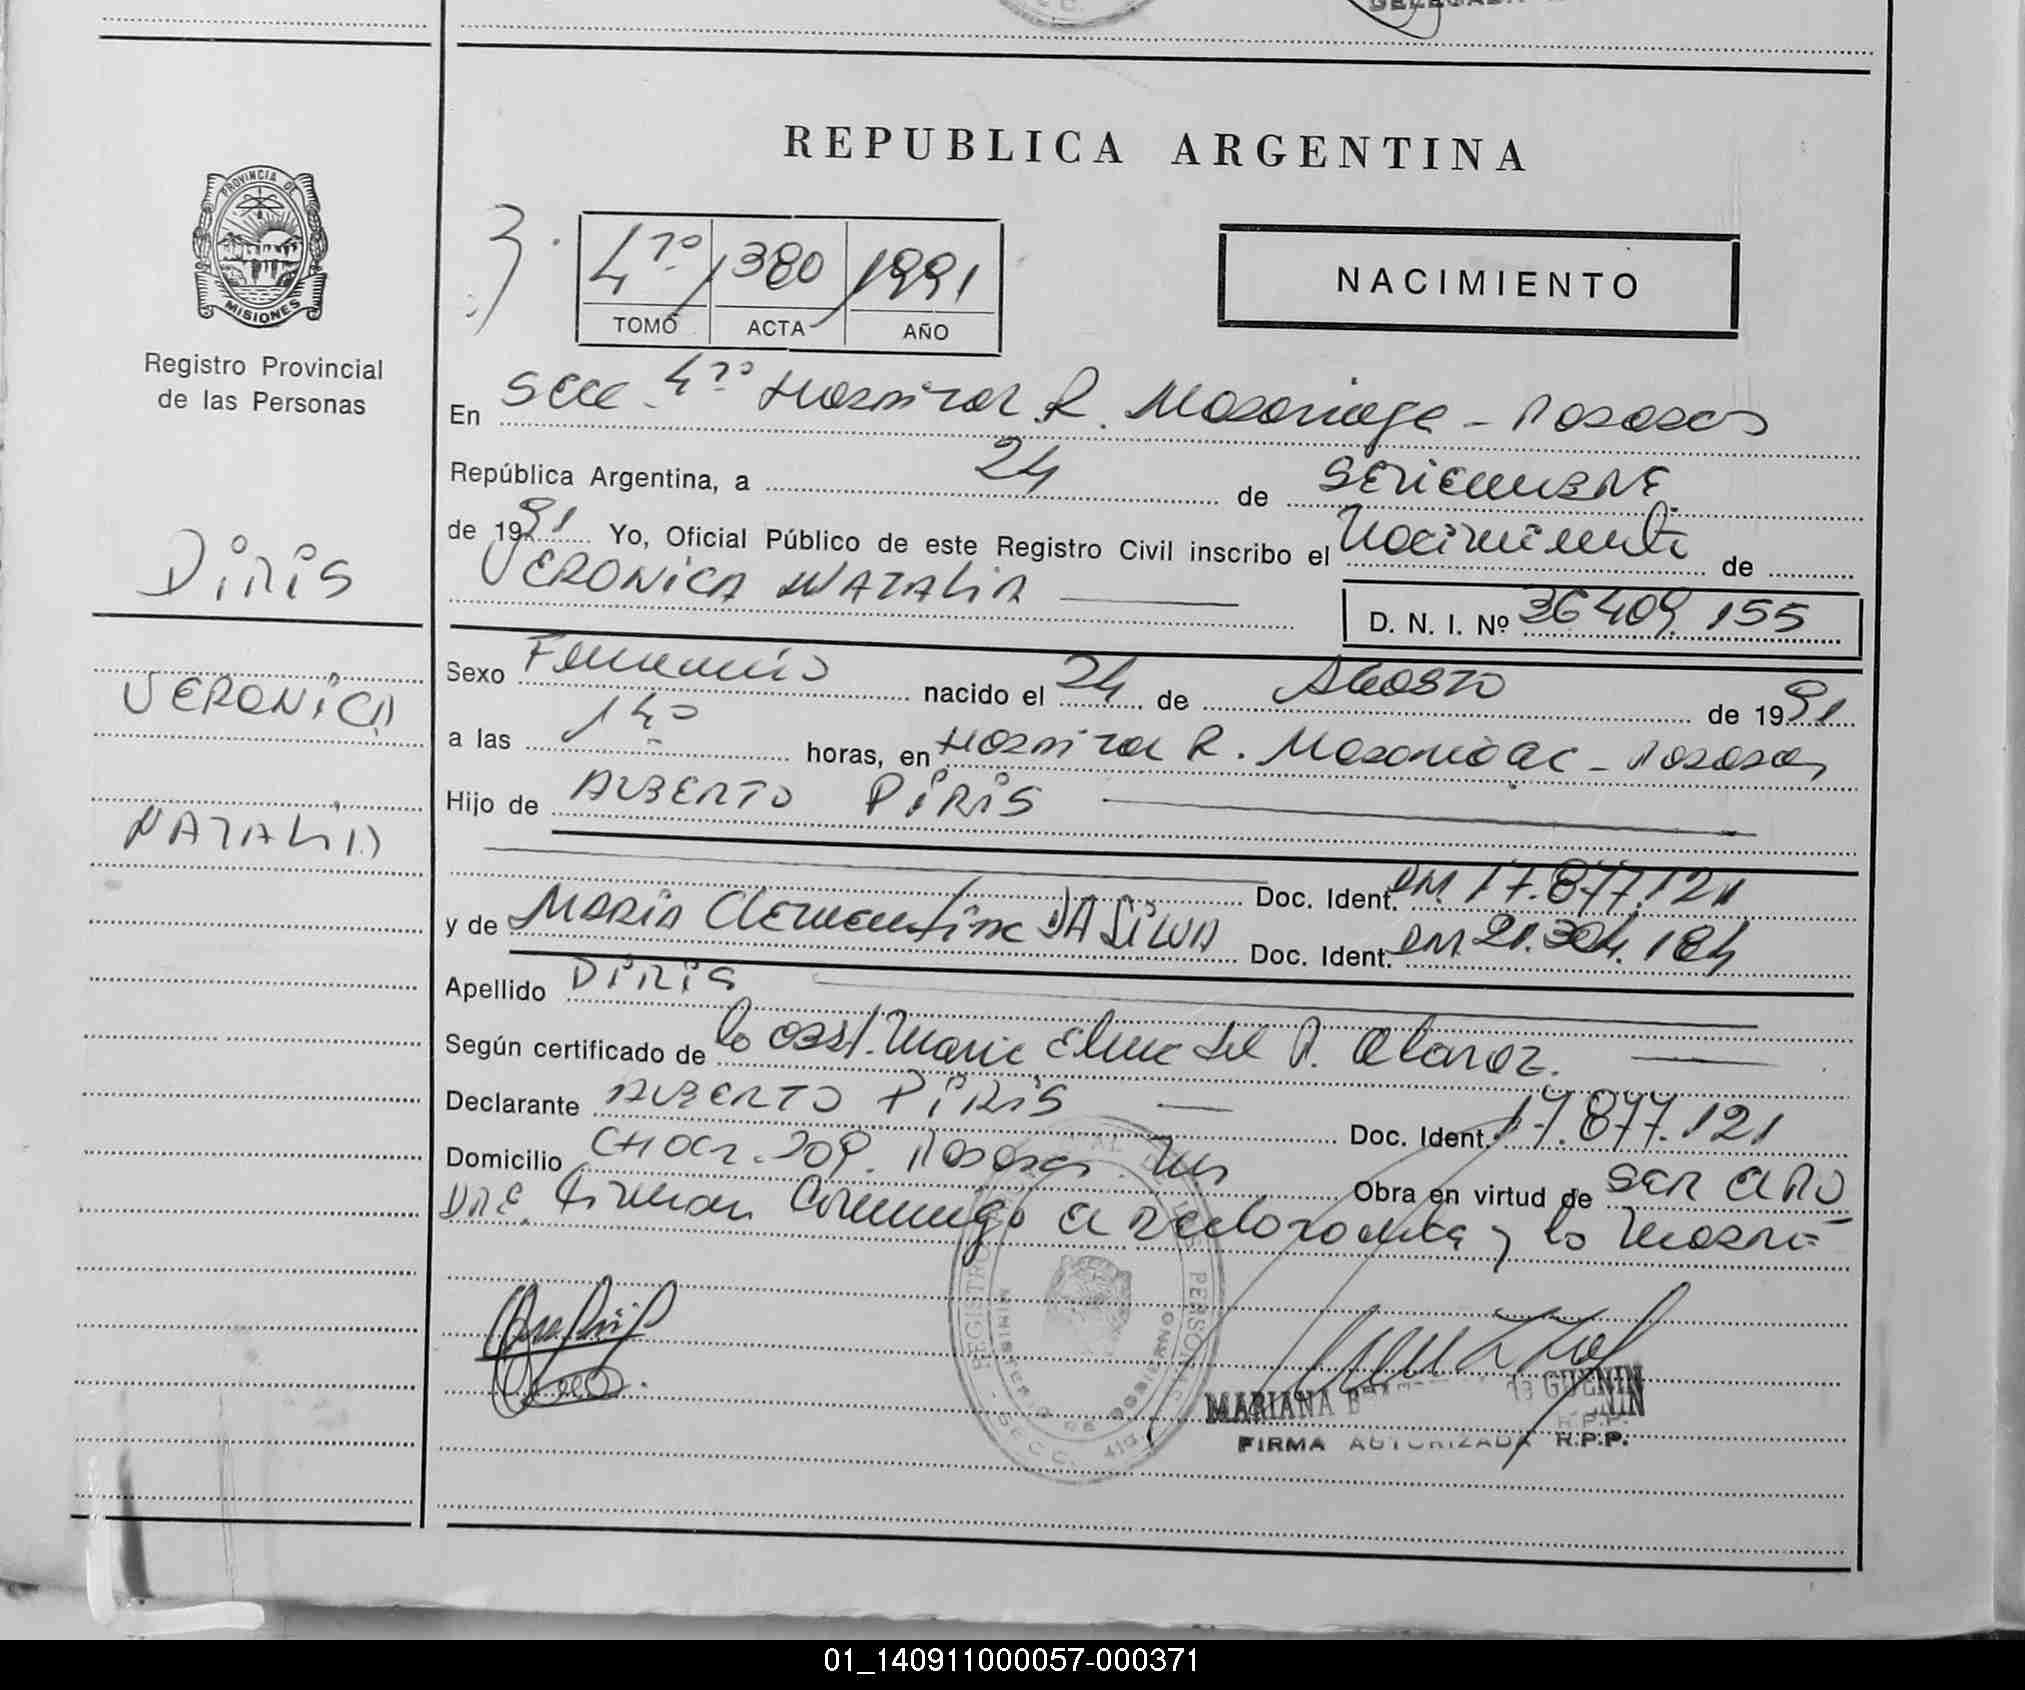 REPUBLICA ARGENTINA
PROVINCIA DE MISIONES
Registro Provincial
de las Personas
4to 380 1991
TOMO ACTA AÑO
NACIMIENTO
En Secc. 4ta Hospital R. Madariaga - Posadas
República Argentina, a 24 de SETIEMBRE
de 1991 Yo, Oficial Público de este Registro Civil inscribo el Nacimiento de
VERONICA NATALIA
D. N. I. Nº 36409.155
PIRIS
VERONICA
NATALIA
Sexo Femenino nacido el 24 de AGOSTO de 1991
a las 14 horas, en Hospital R. Madariaga - Posadas
Hijo de ALBERTO PIRIS
Doc. Ident. DM. 17.877.121
y de MARIA Clementina DA SILVA Doc. Ident. DM. 21.304.184
Apellido PIRIS
Según certificado de la Obst. Maria Elena del P. Alaroz.
Declarante ALBERTO PIRIS Doc. Ident. 17.877.121
Domicilio CHACR. 209. Posadas Mns Obra en virtud de SER EL PA
DRE. Firman Conmigo el declarante y la madre
REGISTRO PERSONAS
MINISTERIO DE GOBIERNO
SECC. 4ta
MARIANA GUENIN
FIRMA AUTORIZADA R.P.P.
01_140911000057-000371